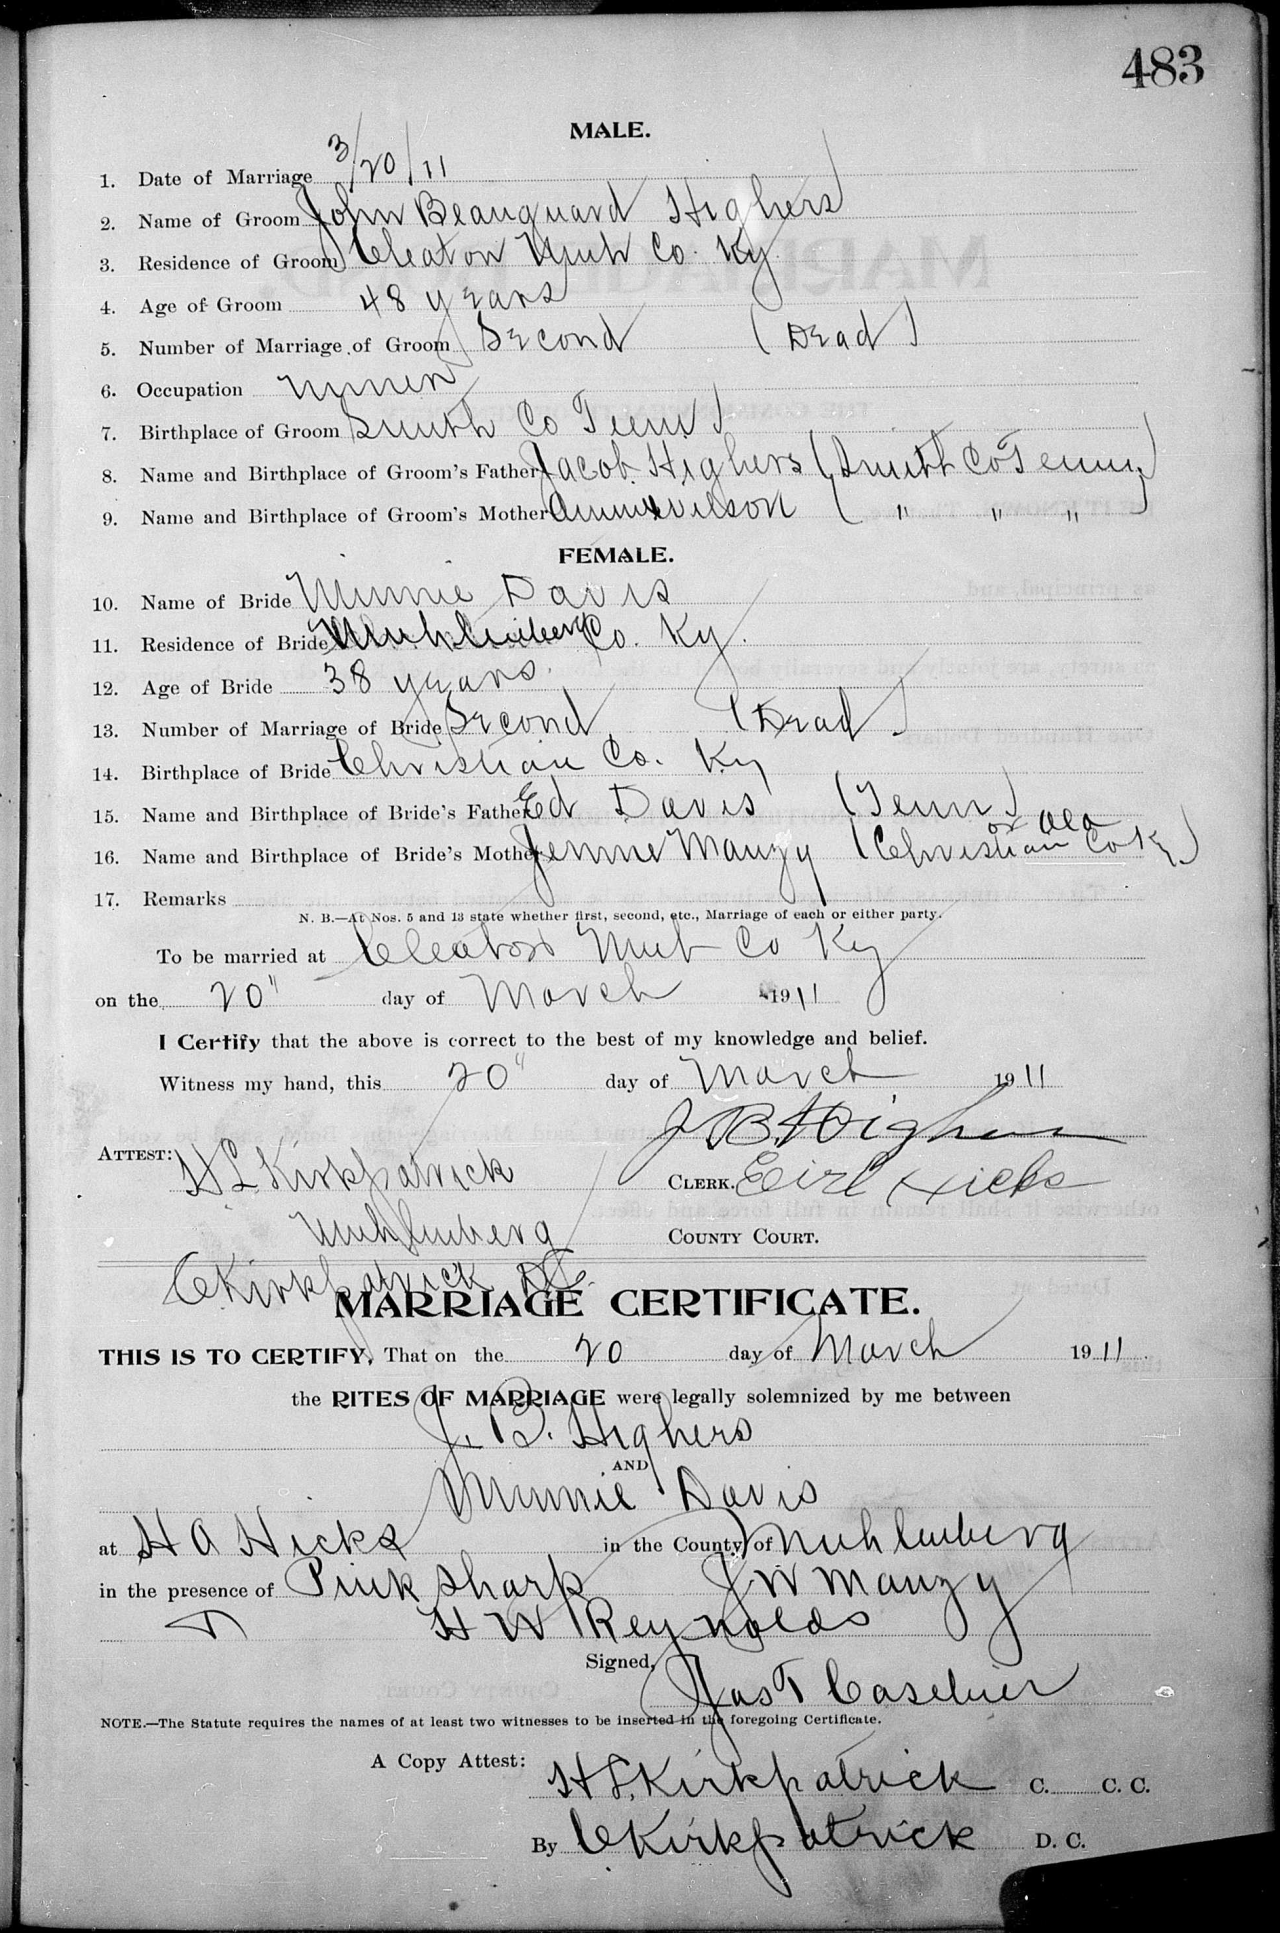 483
MALE.
1. Date of Marriage 3/20/11
2. Name of Groom John Beauguard Highers
3. Residence of Groom Cleaton Muh Co. Ky
4. Age of Groom 48 years
5. Number of Marriage of Groom Second (Dead)
6. Occupation Miner
7. Birthplace of Groom Smith Co Tenn
8. Name and Birthplace of Groom's Father Jacob Highers (Smith Co Tenn)
9. Name and Birthplace of Groom's Mother Wilson ( " " " )
FEMALE.
10. Name of Bride Minnie Davis
11. Residence of Bride Muhlenberg Co. Ky.
12. Age of Bride 38 years.
13. Number of Marriage of Bride Second (Dead)
14. Birthplace of Bride Christian Co. Ky
15. Name and Birthplace of Bride's Father Ed Davis (Tenn)
16. Name and Birthplace of Bride's Mother Jennie Mauzy (Christian Co Ky)
17. Remarks
N. B.—At Nos. 5 and 13 state whether first, second, etc., Marriage of each or either party.
To be married at Cleaton Muh Co Ky
on the 20" day of March 1911
I Certify that the above is correct to the best of my knowledge and belief.
Witness my hand, this 20" day of March 1911
J B Highers
ATTEST: H L Kirkpatrick CLERK.
Muhlenberg COUNTY COURT.
C Kirkpatrick DC.
MARRIAGE CERTIFICATE.
THIS IS TO CERTIFY, That on the 20 day of March 1911
the RITES OF MARRIAGE were legally solemnized by me between
J. B. Highers
AND
Minnie Davis
at H A Hicks in the County of Muhlenberg
in the presence of Pink Sharp J W Mauzy
H W Reynolds
Signed, Jas T Casebier
NOTE.—The Statute requires the names of at least two witnesses to be inserted in the foregoing Certificate.
A Copy Attest:
H L Kirkpatrick C. C. C.
By C Kirkpatrick D. C.